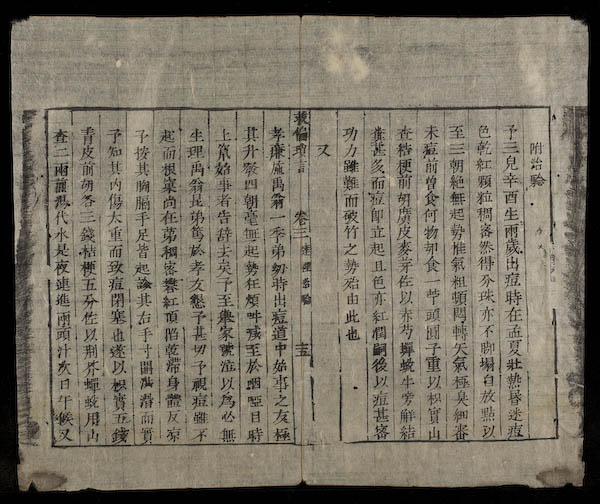 附治驗
予三兒辛酉生兩歲出痘時在孟夏壯熱昏迷痘
色乾紅顆粒稠密然得分珠亦不脚塌自放點以
至三朝絕無起勢惟氣粗頻悶轉矢氣極臭細審
未痘前曾食何物却食一芋頭圓子重以枳實山
查桔梗前胡廣皮麥芽佐以赤芍蟬蛻牛蒡解結
藥甚多而痘即立起且色亦紅潤嗣後以痘甚密
功力雖難而破竹之勢殆由此也
又
救偏瑣言 卷三 治驗 十五
孝廉臧禹翁一季弟幼時出痘道中始事之友極
其升發四朝毫無起勢狂煩呼號至於咽啞目時
上竄始事者告辭去矣予至舉家號泣以為必無
生理禹翁昆弟篤於孝友懇予甚切予視痘雖不
起而根窠尚在第稠密紅頂陷乾滯身體反涼
予按其胸膈手足皆起診其右手寸關滑而實
予知其內傷太重而致痘閉塞也遂以枳實五錢
青皮前胡各三錢桔梗五分佐以荆芥蟬蛻用山
查二兩湯代水是夜連進兩頭汁次日午候又